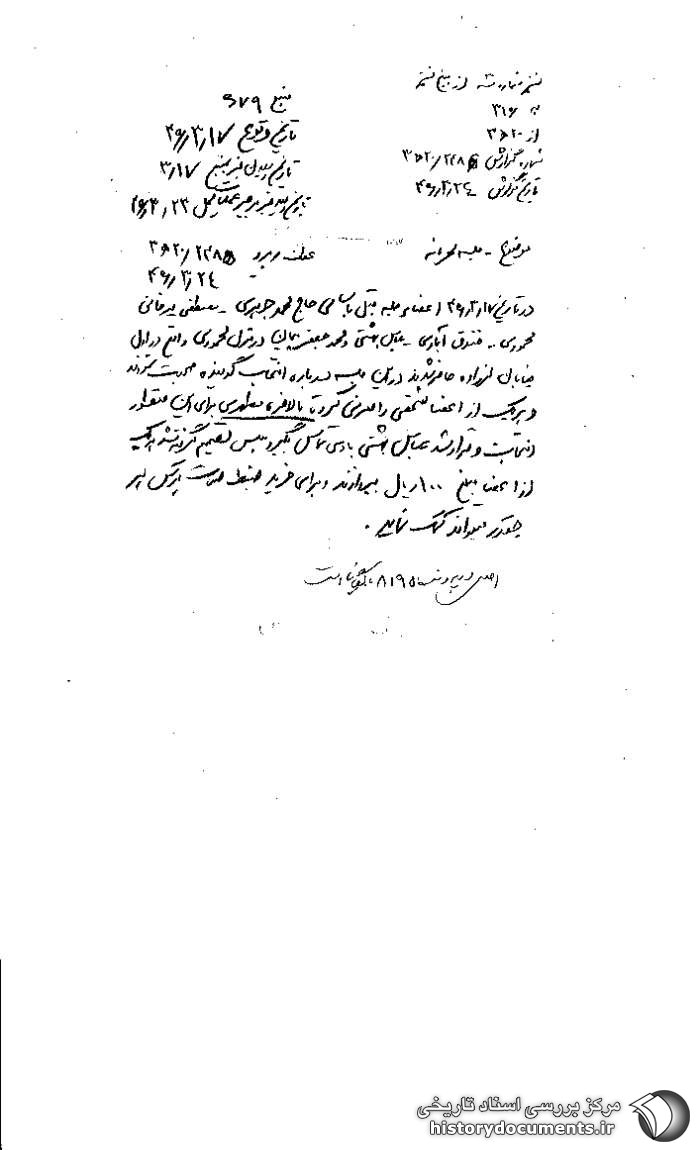 نسخه شماره ۳ از پنج نسخه
به ۳۱۶
از ۲۰ ه ۳
شماره گزارش ۲۲۸۵ / ۲۰ ه ۳
تاریخ گزارش ۴۹/۳/۲۴
منبع ۶۷۹
تاریخ وقوع ۴۹/۳/۱۷
تاریخ رسیدن خبر به منبع ۳/۱۷
تاریخ رسیدن خبر به رهبر عملیات ۴۹/۳/۲۳
موضوع - جلسه محرمانه
۲۲۸۵ / ۲۰ ه ۳
۴۹/۳/۲۴
در تاریخ ۴۹/۳/۱۷ اعضاء جلسه قبل با اسامی حاج محمد جوهری - مصطفی میرخانی
محمودی - فندق آبادی - بهشتی و محمد جعفر در منزل محمودی واقع در اول
خیابان لرزاده حاضر شدند در این جلسه درباره انتخاب گوینده صحبت کردند
و هر یک از اعضا شخصی را معرفی کرد تا بالاخره مطهری برای این منظور
انتخاب و قرار شد بهشتی با وی تماس بگیرد سپس تصمیم گرفته شد هر یک
از اعضا مبلغ ۱۰۰ ریال بپردازند و برای خرید ضبط صوت هر کس هر
چقدر میتواند کمک نماید.
اصل در پرونده ۸۱۹۵ بایگانی است
مرکز بررسی اسناد تاریخی
historydocuments.ir